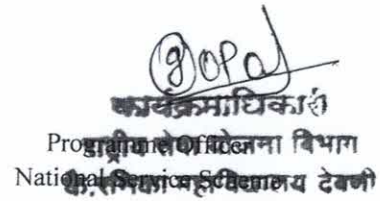 Gopal
कार्यक्रमाधिकारी
Programme Officer
राष्ट्रीय सेवा योजना विभाग
National Service Scheme
महाविद्यालय देवणी